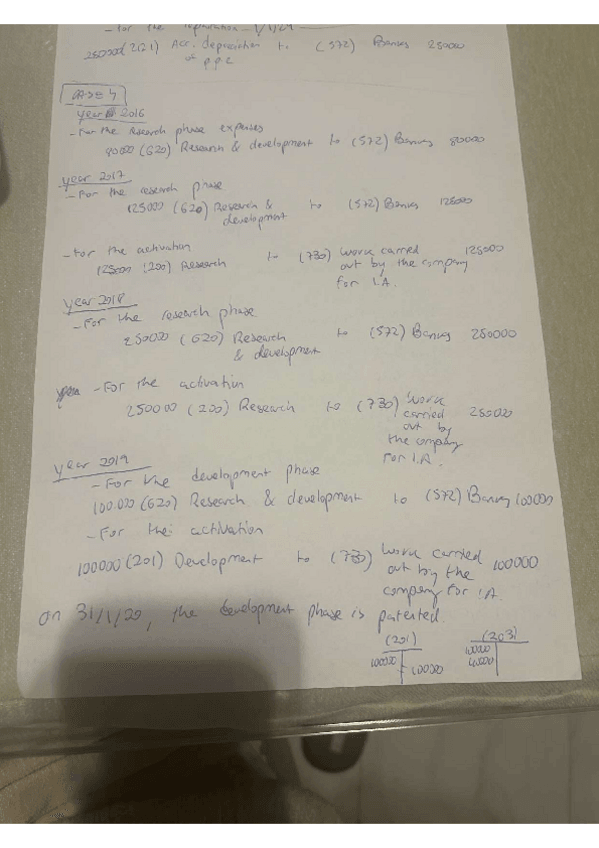 - For the 1/1/24
250000 (2121) Acc. depreciation to (572) Banks 250000
of p.p.2
CASE 4
year 2016
- For the Research phase expenses
80000 (620) Research & development to (572) Banks 80000
year 2017
- For the research phase
125000 (620) Research & to (572) Banks 125000
development
- For the activation
125000 (200) Research to (730) Work carried 125000
out by the company
for I.A.
year 2018
- For the research phase
250000 (620) Research to (572) Banks 250000
& development
- For the activation
250000 (200) Research to (730) Work 250000
carried
out by
the company
for I.A.
year 2019
- For the development phase
100.000 (620) Research & development to (572) Banks 100000
- For the activation
100000 (201) Development to (730) Work carried 100000
out by the
company for I.A.
on 31/1/20, the development phase is patented.
(201) (203)
100000 100000 100000
40000